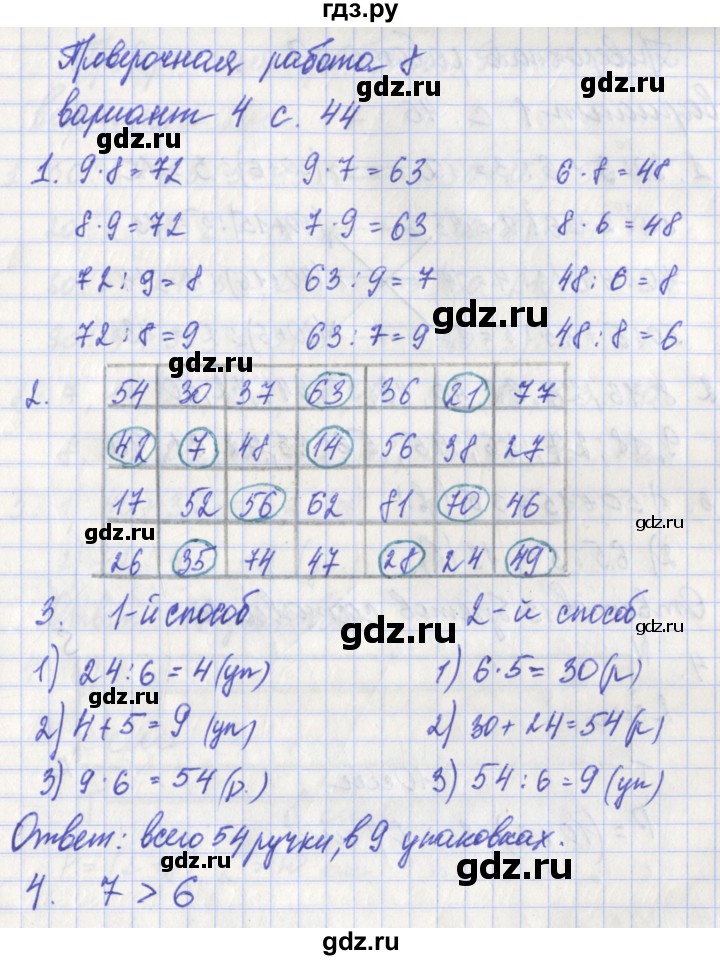 гдз.ру
Проверочная работа 8
gdz.ru
gdz.ru
вариант 4 с. 44
gdz.ru
1. 9·8=72 9·7=63 6·8=48
8·9=72 7·9=63 8·6=48
72:9=8 63:9=7 48:6=8
gdz.ru
72:8=9 63:7=9 48:8=6
gdz.ru
2. 54 30 37 63 36 21 77
42 7 48 14 56 38 27
17 52 56 62 81 70 46
gdz.ru
gdz.ru
26 35 74 47 28 24 49
3. 1-й способ 2-й способ
gdz.ru
gdz.ru
1) 24:6=4(уп) 1) 6·5=30(р)
gdz.ru
2) 4+5=9 (уп) 2) 30+24=54(р)
3) 9·6=54(р.) 3) 54:6=9(уп)
Ответ: всего 54 ручки, в 9 упаковках.
gdz.ru
gdz.ru
4. 7>6
gdz.ru